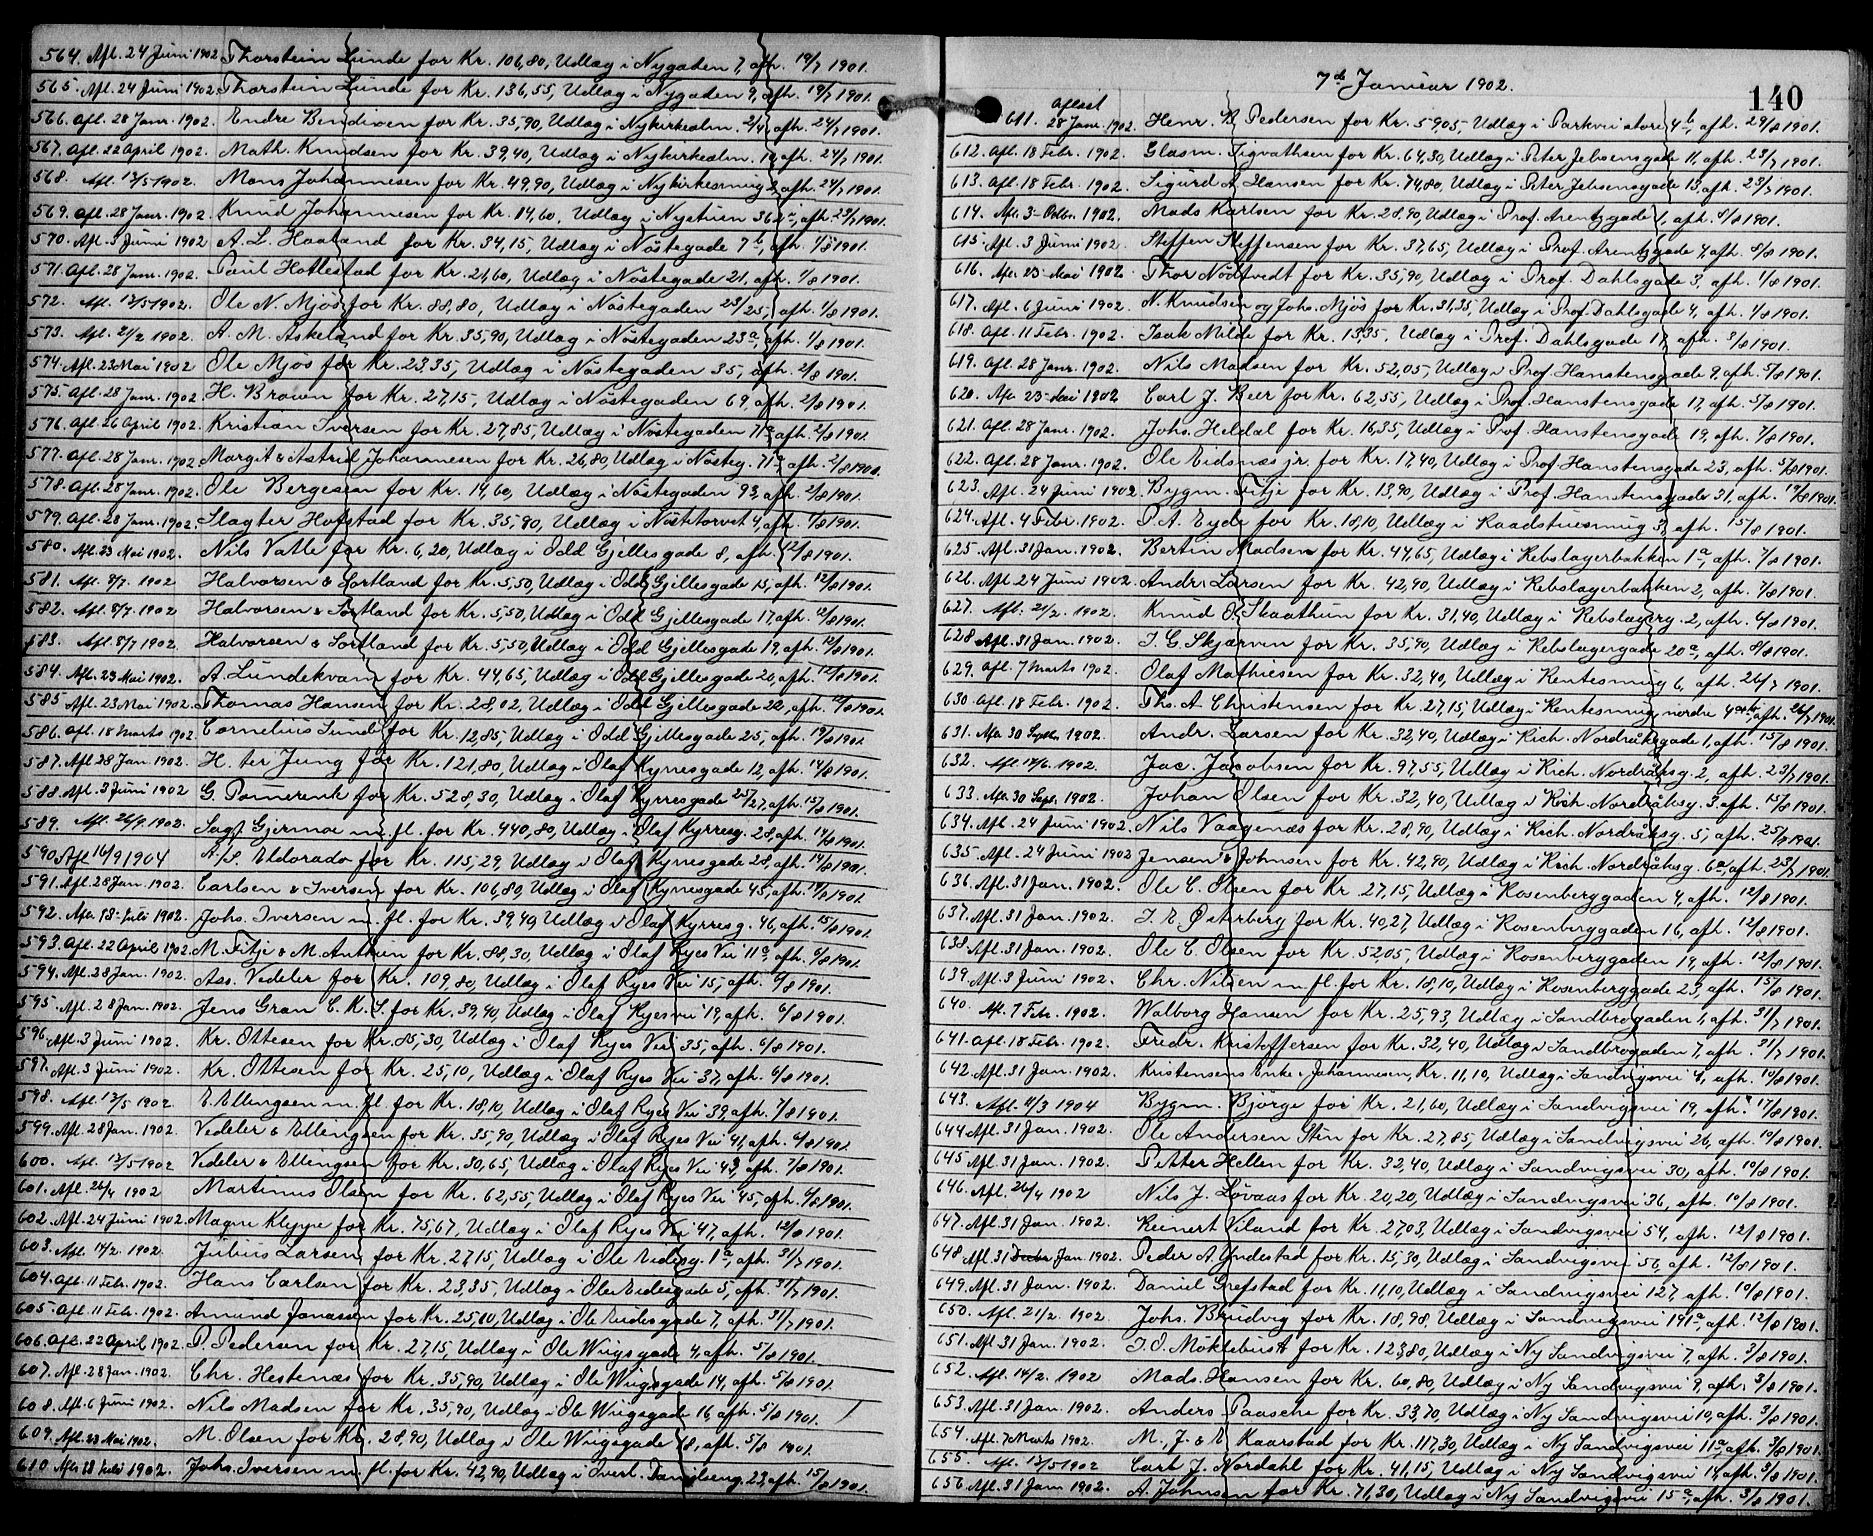 564. Afl. 24 Juni 1902 Thorstein Lunde for Kr. 106,80, Udlæg i Nygaden 7, afh. 19/7 1901.
565. Afl. 24 Juni 1902 Thorstein Lunde for Kr. 136,55, Udlæg i Nygaden 9, afh. 19/7 1901.
566. Afl. 28 Janr. 1902. Endre Bendixen for Kr. 35,90, Udlæg i Nykirkealm. 2/4 afh. 24/7 1901.
567. Afl. 22 April 1902. Math. Knudsen for Kr. 39,40, Udlæg i Nykirkealm. 10, afh. 24/7 1901.
568. Afl. 13/5 1902. Mons Johannesen for Kr. 49,90, Udlæg i Nykirkesmug 2, afh. 24/7 1901.
569. Afl. 28 Janr. 1902. Knud Johannesen for Kr. 14,60, Udlæg i Nystuen 36 a, afh. 23/7 1901.
570. Afl. 5 Juni 1902 A. L. Haaland for Kr. 34,15, Udlæg i Nöstegade 7 b, afh. 1/8 1901.
571. Afl. 28 Janr. 1902. Paul Hollestad for Kr. 21,60, Udlæg i Nöstegade 21, afh. 1/8 1901.
572. Afl. 13/5 1902. Ole N. Mjös for Kr. 88,80, Udlæg i Nöstegaden 23/25, afh. 1/8 1901.
573. Afl. 21/2 1902. A. M. Askeland for Kr. 35,90, Udlæg i Nöstegaden 23 a, afh. 1/8 1901.
574. Afl. 23 Mai 1902 Ole Mjös for Kr. 23,35, Udlæg i Nöstegaden 35, afh. 2/8 1901.
575. Afl. 28 Janr. 1902 H. Brown for Kr. 27,15, Udlæg i Nöstegaden 69, afh. 2/8 1901.
576. Afl. 26 April 1902. Kristian Iversen for Kr. 27,85, Udlæg i Nöstegaden 71 a, afh. 2/8 1901.
577. Afl. 28 Janr. 1902 Margit & Astrid Johannesen for Kr. 26,80, Udlæg i Nösteg. 71 a, afh. 2/8 1901.
578. Afl. 28 Janr. 1902 Ole Bergesen for Kr. 14,60, Udlæg i Nöstegaden 93, afh. 2/8 1901.
579. Afl. 28 Janr. 1902. Slagter Hofstad for Kr. 35,90, Udlæg i Nöstetorvet 4, afh. 1/8 1901.
580. Afl. 23 Mai 1902. Nils Valle for Kr. 6,20, Udlæg i Odd Gjellesgade 8, afh. 12/8 1901.
581. Afl. 8/7 1902 Halvorsen & Sortland for Kr. 5,50, Udlæg i Odd Gjellesgade 15, afh. 12/8 1901.
582. Afl. 8/7 1902 Halvorsen & Sortland for Kr. 5,50, Udlæg i Odd Gjellesgade 17, afh. 12/8 1901.
583. Afl. 8/7 1902. Halvorsen & Sortland for Kr. 5,50, Udlæg i Odd Gjellesgade 19, afh. 12/8 1901.
584. Afl. 23 Mai 1902. A. Lundekvam for Kr. 44,65, Udlæg i Odd Gjellesgade 20, afh. 12/8 1901.
585. Afl. 23 Mai 1902. Thomas Hansen for Kr. 28,02, Udlæg i Odd Gjellesgade 22, afh. 12/8 1901.
586. Afl. 18 Marts 1902 Cornelius Sund for Kr. 12,85, Udlæg i Odd Gjellesgade 25, afh. 19/8 1901.
587. Afl. 28 Jan. 1902. H. ter Jung for Kr. 121,80, Udlæg i Olaf Kyrresgade 12, afh. 14/8 1901.
588. Afl. 3 Juni 1902 G. Pomerenk for Kr. 528,30, Udlæg i Olaf Kyrresgade 25/27, afh. 15/8 1901.
589. Afl. 26/9 1902. Sagf. Gjermoe m. fl. for Kr. 440,80, Udlæg i Olaf Kyrresg. 28, afh. 14/8 1901.
590. Afl 16/9 1904 A/S. Eldorado for Kr. 115,29, Udlæg i Olaf Kyrresgade 28, afh. 14/8 1901.
591. Afl. 28 Jan. 1902. Carlsen & Iversen for Kr. 106,80, Udlæg i Olaf Kyrresgade 45, afh. 14/8 1901.
592. Afl. 18 Juli 1902. Johs. Iversen m. fl. for Kr. 39,40, Udlæg i Olaf Kyrresg. 46, afh. 15/8 1901.
593. Afl. 22 April 1902. M. Fitje & M. Anthun for Kr. 88,30, Udlæg i Olaf Ryes Vei 11 a, afh. 6/8 1901.
594. Afl. 28 Jan. 1902. Ass. Vedeler for Kr. 109,80, Udlæg i Olaf Ryes Vei 15, afh. 6/8 1901.
595. Afl. 28 Jan. 1902. Jens Gran C. K. S. for Kr. 39,40, Udlæg i Olaf Ryesvei 19, afh. 6/8 1901.
596. Afl. 3 Juni 1902. Kr. Ottesen for Kr. 85,30, Udlæg i Olaf Ryes Vei 35, afh. 6/8 1901.
597. Afl. 3 Juni 1902. Kr. Ottesen for Kr. 25,10, Udlæg i Olaf Ryes Vei 37, afh. 6/8 1901.
598. Afl. 13/5 1902 E. Ellingsen m. fl. for Kr. 18,10, Udlæg i Olaf Ryes Vei 39, afh. 7/8 1901.
599. Afl. 28 Jan. 1902. Vedeler & Ellingsen for Kr. 35,90, Udlæg i Olaf Ryes Vei 41, afh. 6/8 1901.
600. Afl. 13/5 1902 Vedeler & Ellingsen for Kr. 30,65, Udlæg i Olaf Ryes Vei 43, afh. 7/8 1901.
601. Afl. 26/4 1902 Martinus Olsen for Kr. 62,55, Udlæg i Olaf Ryes Vei 45, afh. 6/8 1901.
602. Afl. 24 Juni 1902. Magne Kleppe for Kr. 75,67, Udlæg i Olaf Ryes Vei 47, afh. 12/8 1901.
603. Afl. 14/2. 1902. Julius Larsen for Kr. 27,15, Udlæg i Ole Eidesg. 1 a, afh. 31/7 1901.
604. Afl. 11 Febr. 1902. Hans Carlsen for Kr. 23,35, Udlæg i Ole Eidesgade 5, afh. 31/7 1901.
605. Afl. 11 Feb. 1902. Amund Jonassen for Kr. 25,80, Udlæg i Ole Eidesgade 7, afh. 31/7 1901.
606. Afl. 22 April 1902. P. Pedersen for Kr. 27,15, Udlæg i Ole Wiigsgade 4, afh. 5/8 1901.
607. Afl. 28 Jan. 1902. Chr. Hestenæs for Kr. 35,90, Udlæg i Ole Wiigsgade 14, afh. 5/8 1901.
608. Afl. 6 Juni 1902. Nils Madsen for Kr. 35,90, Udlæg i Ole Wiigsgade 16, afh. 5/8 1901.
609. Afl. 23 Mai 1902. M. Olsen for Kr. 28,90, Udlæg i Ole Wiigsgade 18, afh. 5/8 1901.
610 Afl. 18 Juli 1902. Johs. Iversen m. fl. for Kr. 42,90, Udlæg i Tverl. Damsbeng. 22, afh. 15/8 1901.
7de Januar 1902.
140
611. Aflæst 28 Janr. 1902. Henr. B. Pedersen for Kr. 59,05, Udlæg i Parkvei store 4 b, afh. 29/8 1901.
612. Afl. 18 Febr. 1902. Glasm. Sigvathsen for Kr. 64,30, Udlæg i Peter Jebsensgade 11, afh. 23/7 1901.
613. Afl. 18 Febr. 1902. Sigurd A. Hansen for Kr. 74,80, Udlæg i Peter Jebsensgade 13, afh. 23/7 1901.
614. Afl. 3 Octbr. 1902. Mads Karlsen for Kr. 28,90, Udlæg i Prof. Arentzgade 1, afh. 8/8 1901.
615. Afl. 3 Juni 1902. Steffen Steffensen for Kr. 37,65, Udlæg i Prof. Arentzgade 4, afh. 8/8 1901.
616. Afl. 23 Mai 1902 Thor Nödtvedt for Kr. 35,90, Udlæg i Prof. Dahlsgade 3, afh. 1/8 1901.
617. Afl. 6 Juni 1902 N. Knudsen og Johs. Mjös for Kr. 31,35, Udlæg i Prof. Dahlsgade 4, afh. 1/8 1901.
618. Afl. 11 Febr. 1902. Isak Milde for Kr. 13,35, Udlæg i Prof. Dahlsgade 17, afh. 3/8 1901.
619. Afl. 28 Janr. 1902. Nils Madsen for Kr. 52,05, Udlæg i Prof. Hanstensgade 9, afh. 5/8 1901.
620. Afl. 23 Mai 1902 Carl J. Beer for Kr. 62,55, Udlæg i Prof. Hanstensgade 17, afh. 5/8 1901.
621. Afl. 28 Janr. 1902. Johs. Heldal for Kr. 16,35, Udlæg i Prof. Hanstensgade 19, afh. 7/8 1901.
622. Afl. 28 Janr. 1902. Ole Eidsnæs jr. for Kr. 17,40, Udlæg i Prof. Hanstensgade 23, afh. 5/8 1901.
623. Afl. 24 Juni 1902. Bygm. Fitje for Kr. 13,90, Udlæg i Prof. Hanstensgade 31, afh. 14/8 1901.
624. Afl. 4 Febr. 1902. P. A. Eyde for Kr. 18,10, Udlæg i Raadstuesmug 3, afh. 15/8 1901.
625. Afl. 31 Jan. 1902. Bertin Madsen for Kr. 44,65, Udlæg i Rebslagerbakken 1 a, afh. 7/8 1901.
626. Afl. 24 Juni 1902. Andr. Larsen for Kr. 42,90, Udlæg i Rebslagerbakken 2, afh. 7/8 1901.
627. Afl. 21/2. 1902. Knud O. Skaathun for Kr. 31,40, Udlæg i Rebslagerg. 2, afh. 6/8 1901.
628 Afl. 31 Jan. 1902. I. G. Skjærven for Kr. 35,90, Udlæg i Rebslagergade 20 a, afh. 8/8 1901.
629. Afl. 7 Marts 1902. Olaf Mathiesen for Kr. 32,40, Udlæg i Rentesmug 6, afh. 26/7 1901.
630. Afl. 18 Febr. 1902. Ths. A. Christensen for Kr. 27,15, Udlæg i Rentesmug nordre 4, afh. 26/7 1901.
631. Afl. 30 Septbr. 1902. Andr. Larsen for Kr. 32,40, Udlæg i Rich. Nordråksgade 1, afh. 15/8 1901.
632. Afl. 17/6. 1902. Jac. Jacobsen for Kr. 97,55, Udlæg i Rich. Nordråksg. 2, afh. 23/7 1901.
633. Afl. 30 Sept. 1902. Johan Olsen for Kr. 32,40, Udlæg i Rich. Nordråksg. 3, afh. 15/8 1901.
634. Afl. 24 Juni 1902. Nils Vaagenæs for Kr. 28,90, Udlæg i Rich. Nordråksg. 5, afh. 25/7 1901.
635. Afl. 24 Juni 1902 Jensen & Johnsen for Kr. 42,90, Udlæg i Rich. Nordråksg. 6 a, afh. 23/7 1901.
636. Afl. 31 Jan. 1902. Ole C. Olsen for Kr. 27,15, Udlæg i Rosenberggaden 4, afh. 12/8 1901.
637. Afl. 31 Jan. 1902. I. E. Østerberg for Kr. 40,27, Udlæg i Rosenberggaden 16, afh. 12/8 1901.
638. Afl. 31 Jan. 1902. Ole C. Olsen for Kr. 52,05, Udlæg i Rosenberggaden 19, afh. 12/8 1901.
639. Afl. 3 Juni 1902. Chr. Nilsen m. fl. for Kr. 18,10, Udlæg i Rosenberggade 23, afh. 15/8 1901.
640. Afl. 7 Febr. 1902. Walborg Hansen for Kr. 25,93, Udlæg i Sandbrogaden 1, afh. 31/7 1901.
641. Afl. 18 Febr. 1902. Fredr. Kristoffersen for Kr. 32,40, Udlæg i Sandbrogaden 7, afh. 31/7 1901.
642. Afl. 31 Jan. 1902. Kristensens Enke, Johannesen, Kr. 11,10, Udlæg i Sandvigsvei 4, afh. 10/8 1901.
643. Afl. 11/3 1904 Bygm. Bjørge for Kr. 21,60, Udlæg i Sandvigsvei 19, afh. 17/8 1901.
644 Afl. 31 Jan. 1902. Ole Andersen Stin for Kr. 27,85, Udlæg i Sandvigsvei 26, afh. 10/8 1901.
645. Afl. 31 Jan. 1902. Petter Hellen for Kr. 32,40, Udlæg i Sandvigsvei 30, afh. 10/8 1901.
646. Afl. 26/4 1902 Nils J. Løvaas for Kr. 20,20, Udlæg i Sandvigsvei 36, afh. 10/8 1901.
647. Afl. 31 Jan. 1902. Reinert Viland for Kr. 27,03, Udlæg i Sandvigsvei 54, afh. 12/8 1901.
648. Afl. 31 Jan. 1902. Peder A. Yndestad for Kr. 15,30, Udlæg i Sandvigsvei 56, afh. 12/8 1901.
649. Afl. 31 Jan. 1902. Daniel Grefstad for Kr. 11,10, Udlæg i Sandvigsvei 127, afh. 10/8 1901.
650. Afl. 21/2. 1902 Johs. Brudvig for Kr. 18,98, Udlæg i Sandvigsvei 191 a, afh. 12/8 1901.
651. Afl. 31 Jan. 1902. I. O. Möklebust for Kr. 123,80, Udlæg i Ny Sandvigsvei 7, afh. 3/8 1901.
652. Afl. 14/2. 1902 Mads Hansen for Kr. 60,80, Udlæg i Ny Sandvigsvei 9, afh. 3/8 1901.
653. Afl. 31 Jan. 1902. Anders Paasche for Kr. 33,70, Udlæg i Ny Sandvigsvei 10, afh. 3/8 1901.
654. Afl. 7 Marts 1902. M. J. & E. Kaarstad for Kr. 117,30, Udlæg i Ny Sandvigsvei 11 a, afh. 3/8 1901.
655. Afl. 13/5 1902 Carl J. Nordahl for Kr. 41,15, Udlæg i Ny Sandvigsvei 14, afh. 3/8 1901.
656. Afl. 31 Jan 1902. A. Johnsen for Kr. 71,30, Udlæg i Ny Sandvigsvei 15 a, afh. 3/8 1901.